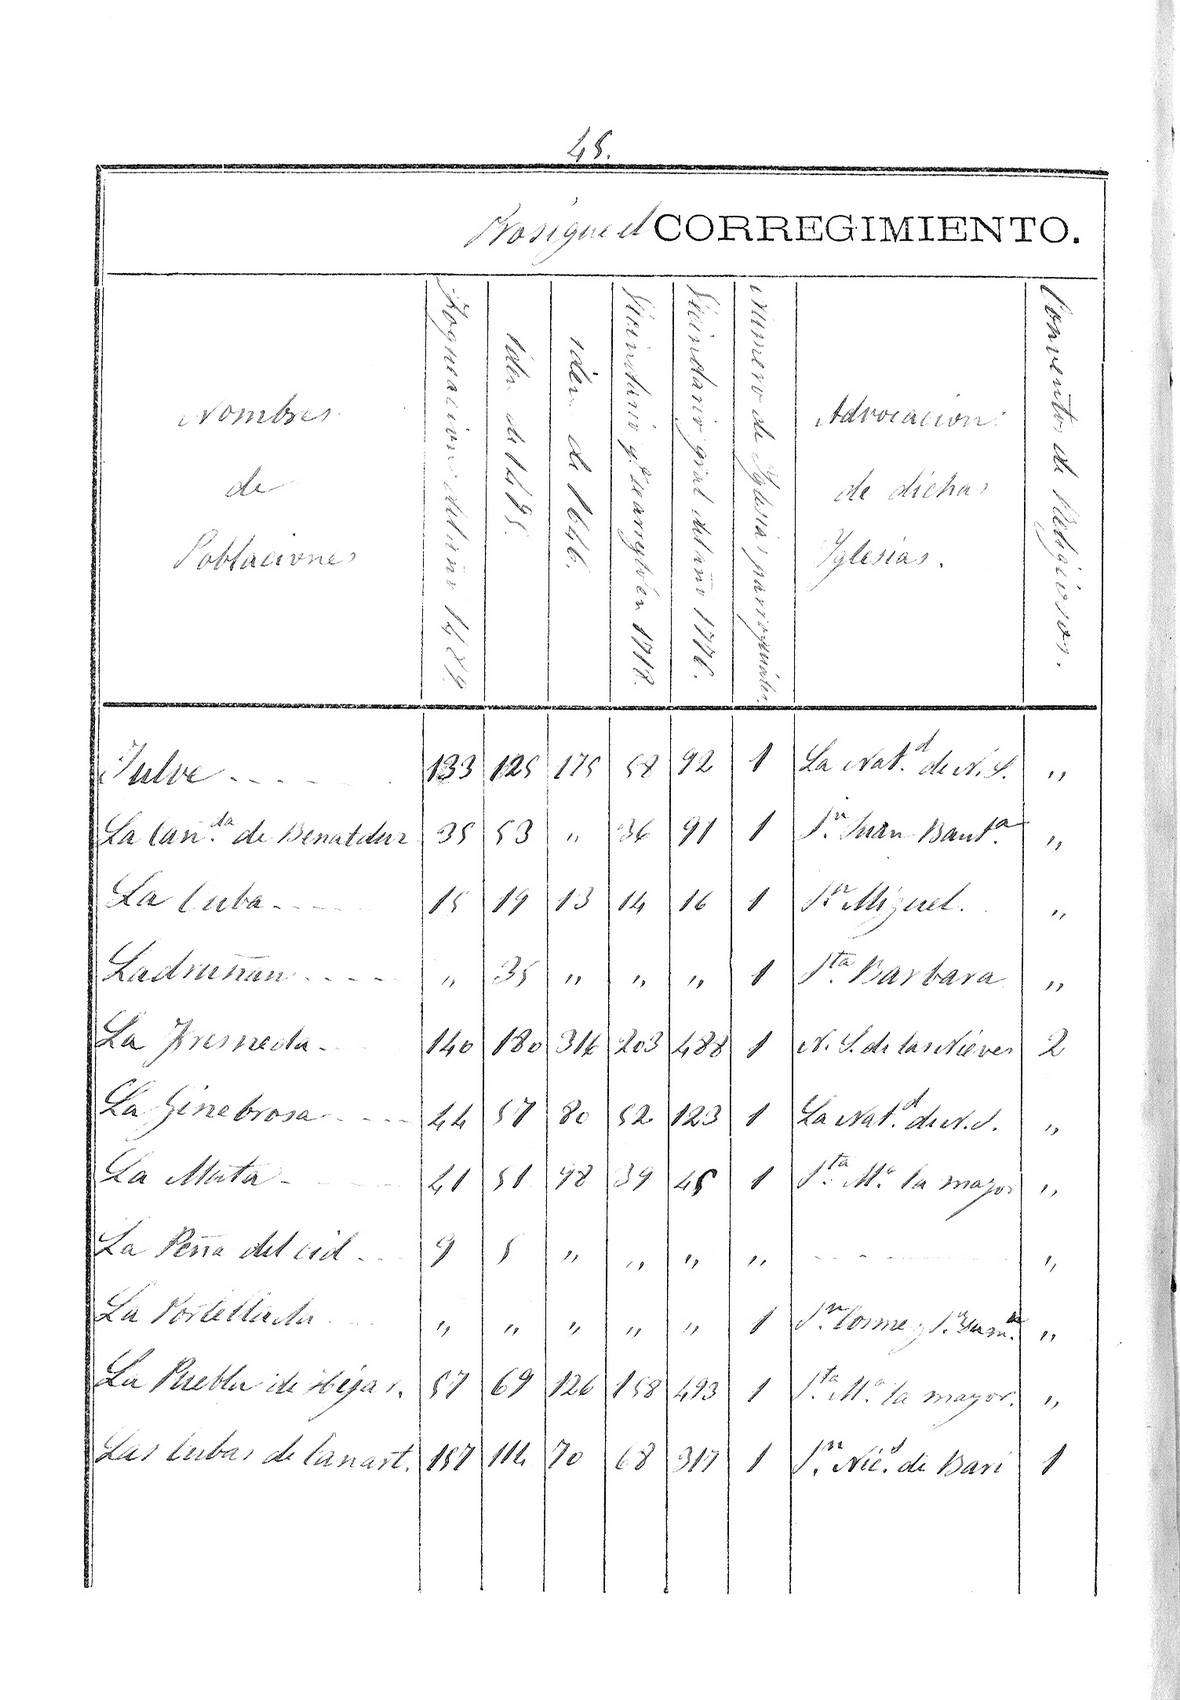 45.
Prosigue el CORREGIMIENTO.
Nombres de Poblaciones
Fogueacion del año 1489
iden de 1495.
iden de 1646.
Vecindario qe se arregló en 1718.
Vecindario gral del año 1776.
Numero de Yglesias parroquiales.
Advocacion de dichas Yglesias.
Conventos de Religiosos.
Julve 133 125 175 58 92 1 La Nat.d de N. S. "
La Can.da de Benatduz 35 53 " 36 91 1 S.n Juan Baut.a "
La Cuba 15 19 13 14 16 1 S.n Miguel. "
Ladruñan " 35 " " " 1 S.ta Barbara "
La Fresneda 140 180 316 203 488 1 N. S. de las Nieves 2
La Ginebrosa 44 57 80 52 123 1 La Nat.d de N. S. "
La Mata 41 51 98 39 45 1 S.ta M.a la mayor "
La Peña del cid 9 5 " " " " "
La Portellada " " " " " 1 S.n Cosme y S.n Dam.n "
La Puebla de Hijar. 57 69 126 158 493 1 S.ta M.a la mayor. "
Las Cubas de Canart. 157 114 70 68 317 1 S.n Nic.s de Bari 1